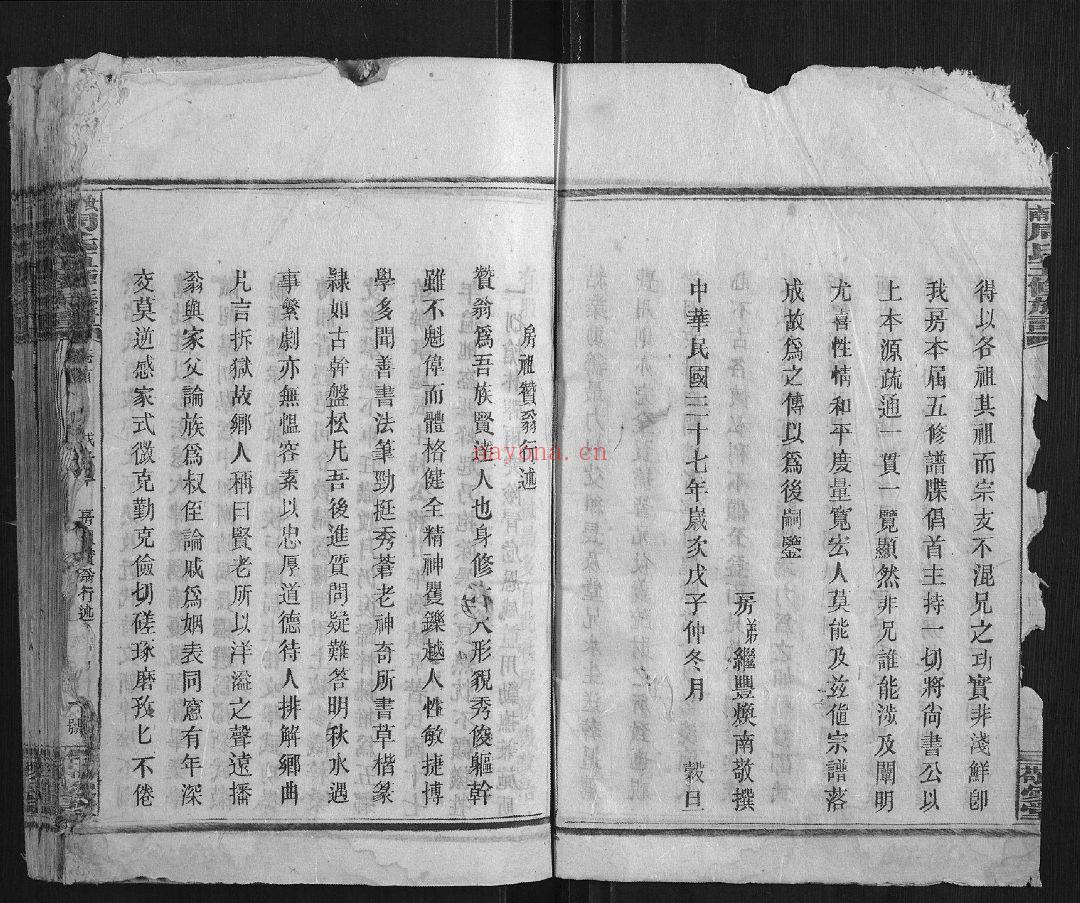 得以各祖其祖而宗支不混兄之功實非淺鮮卽
我房本届五修譜牒倡首主持一切將尚書公以
上本源疏通一貫一覽顯然非兄誰能涉及闡明
尤喜性情和平度量寬宏人莫能及兹值宗譜落
成故爲之傳以爲後嗣鑒
房弟繼豐煥南敬撰
中華民國三十七年歲次戊子仲冬月 穀旦
房祖贊翁行述
贊翁爲吾族賢達人也身修 八形貌秀俊軀幹
雖不魁偉而體格健全精神矍鑠越人性敏捷博
學多聞善書法筆勁挺秀蒼老神奇所書草楷篆
隸如古幹盤松凡吾後進質問疑難答明秋水遇
事繁劇亦無慍容素以忠厚道德待人排解鄉曲
片言拆獄故鄉人稱曰賢老所以洋溢之聲遠播
翁與家父論族爲叔侄論戚爲姻表同窻有年深
交莫逆感家式微克勤克儉切磋琢磨孜匕不倦
房 贊翁行述
nayona.cn